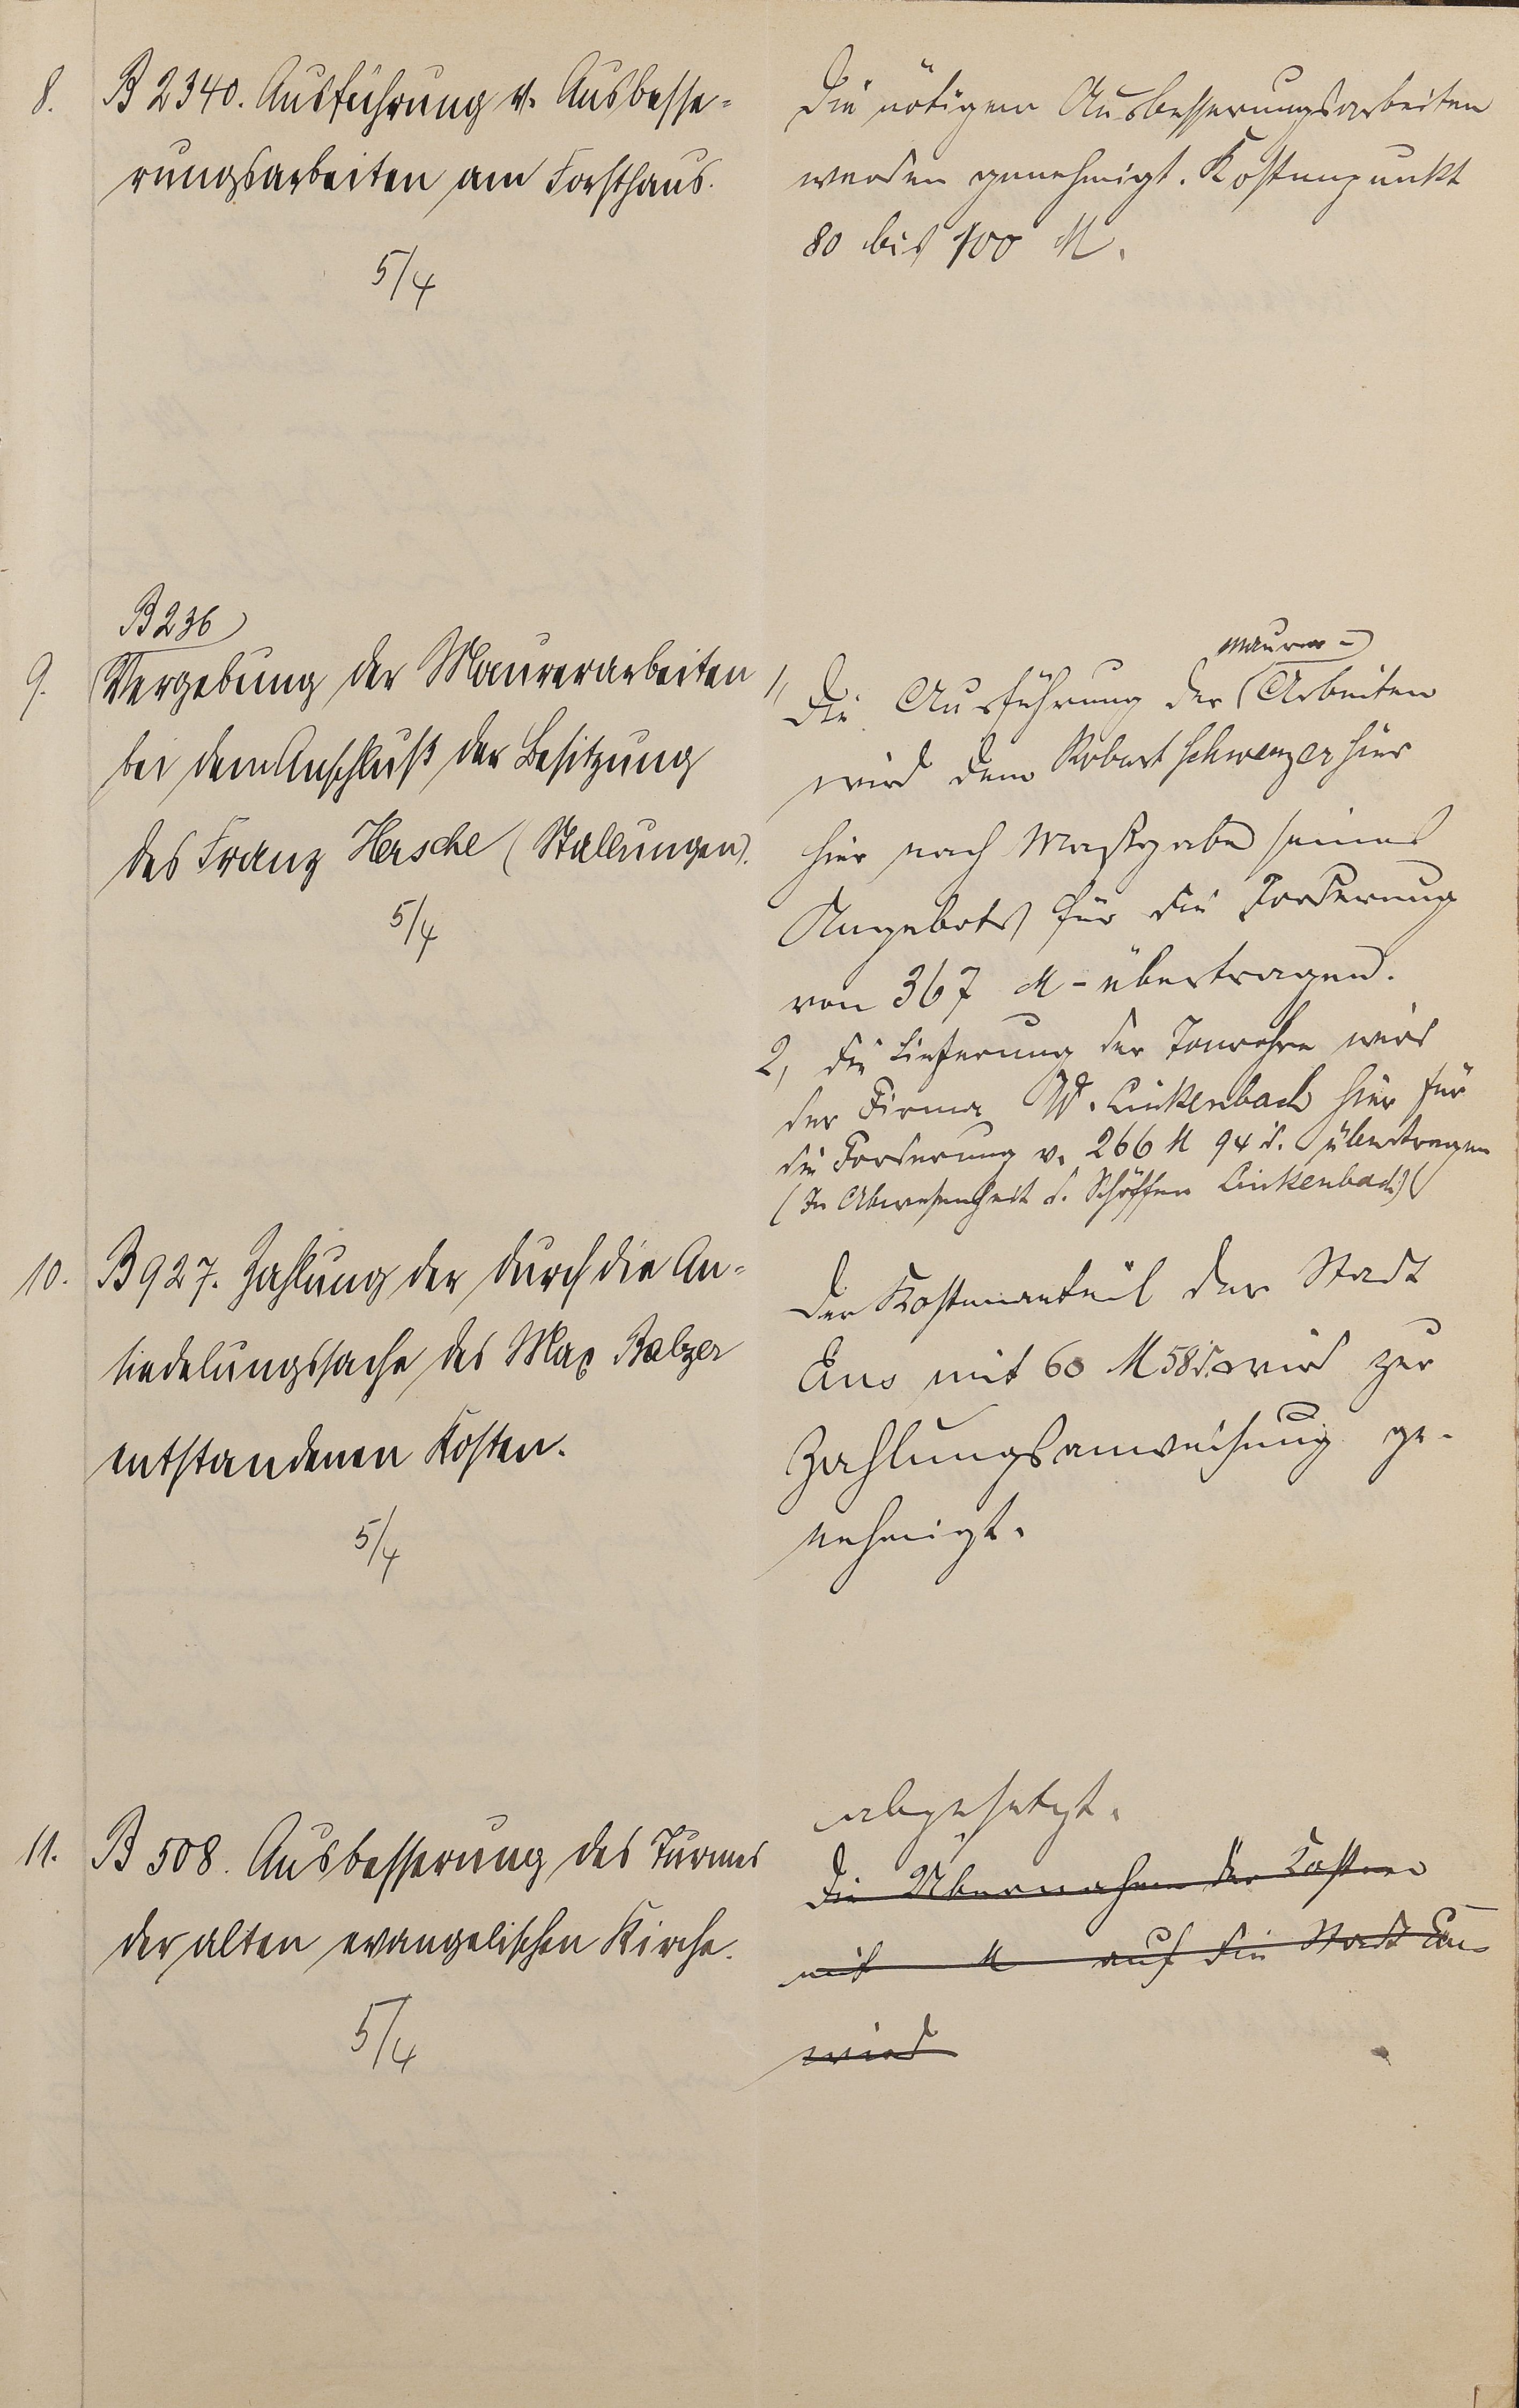 8. B 2340. Ausführung v. Ausbesse-
rungsarbeiten am Forsthaus.
5/4
Die nötigen Ausbesserungsarbeiten
werden genehmigt. Kostenpunkt
80 bis 100 M.
B 236
9. Vergebung der Maurerarbeiten
bei dem Anschluß der Besitzung
des Franz Hersche (Stallungen).
5/4
Maurer-
1, Die Ausführung der Arbeiten
wird dem Robert Schwenzer hier
hier nach Maßgabe seines
Angebots für die Forderung
von 367 M - übertragen.
2, Die Lieferung der Tonrohre wird
der Firma W. Linkenbach hier für
die Forderung v. 266 M 94 d. übertragen
(In Abwesenheit d. Schöffen Linkenbach)
10. B 927. Zahlung der durch die An-
siedelungssache des Max Balzer
entstandenen Kosten.
5/4
Der Kostenanteil der Stadt
Ems mit 60 M 58 d. wird zur
Zahlungsanweisung ge-
nehmigt.
11. B 508. Ausbesserung des Turmes
der alten evangelischen Kirche.
5/4
abgesetzt.
Die Übernahme der Kosten
mit M auf die Stadt Ems
wird